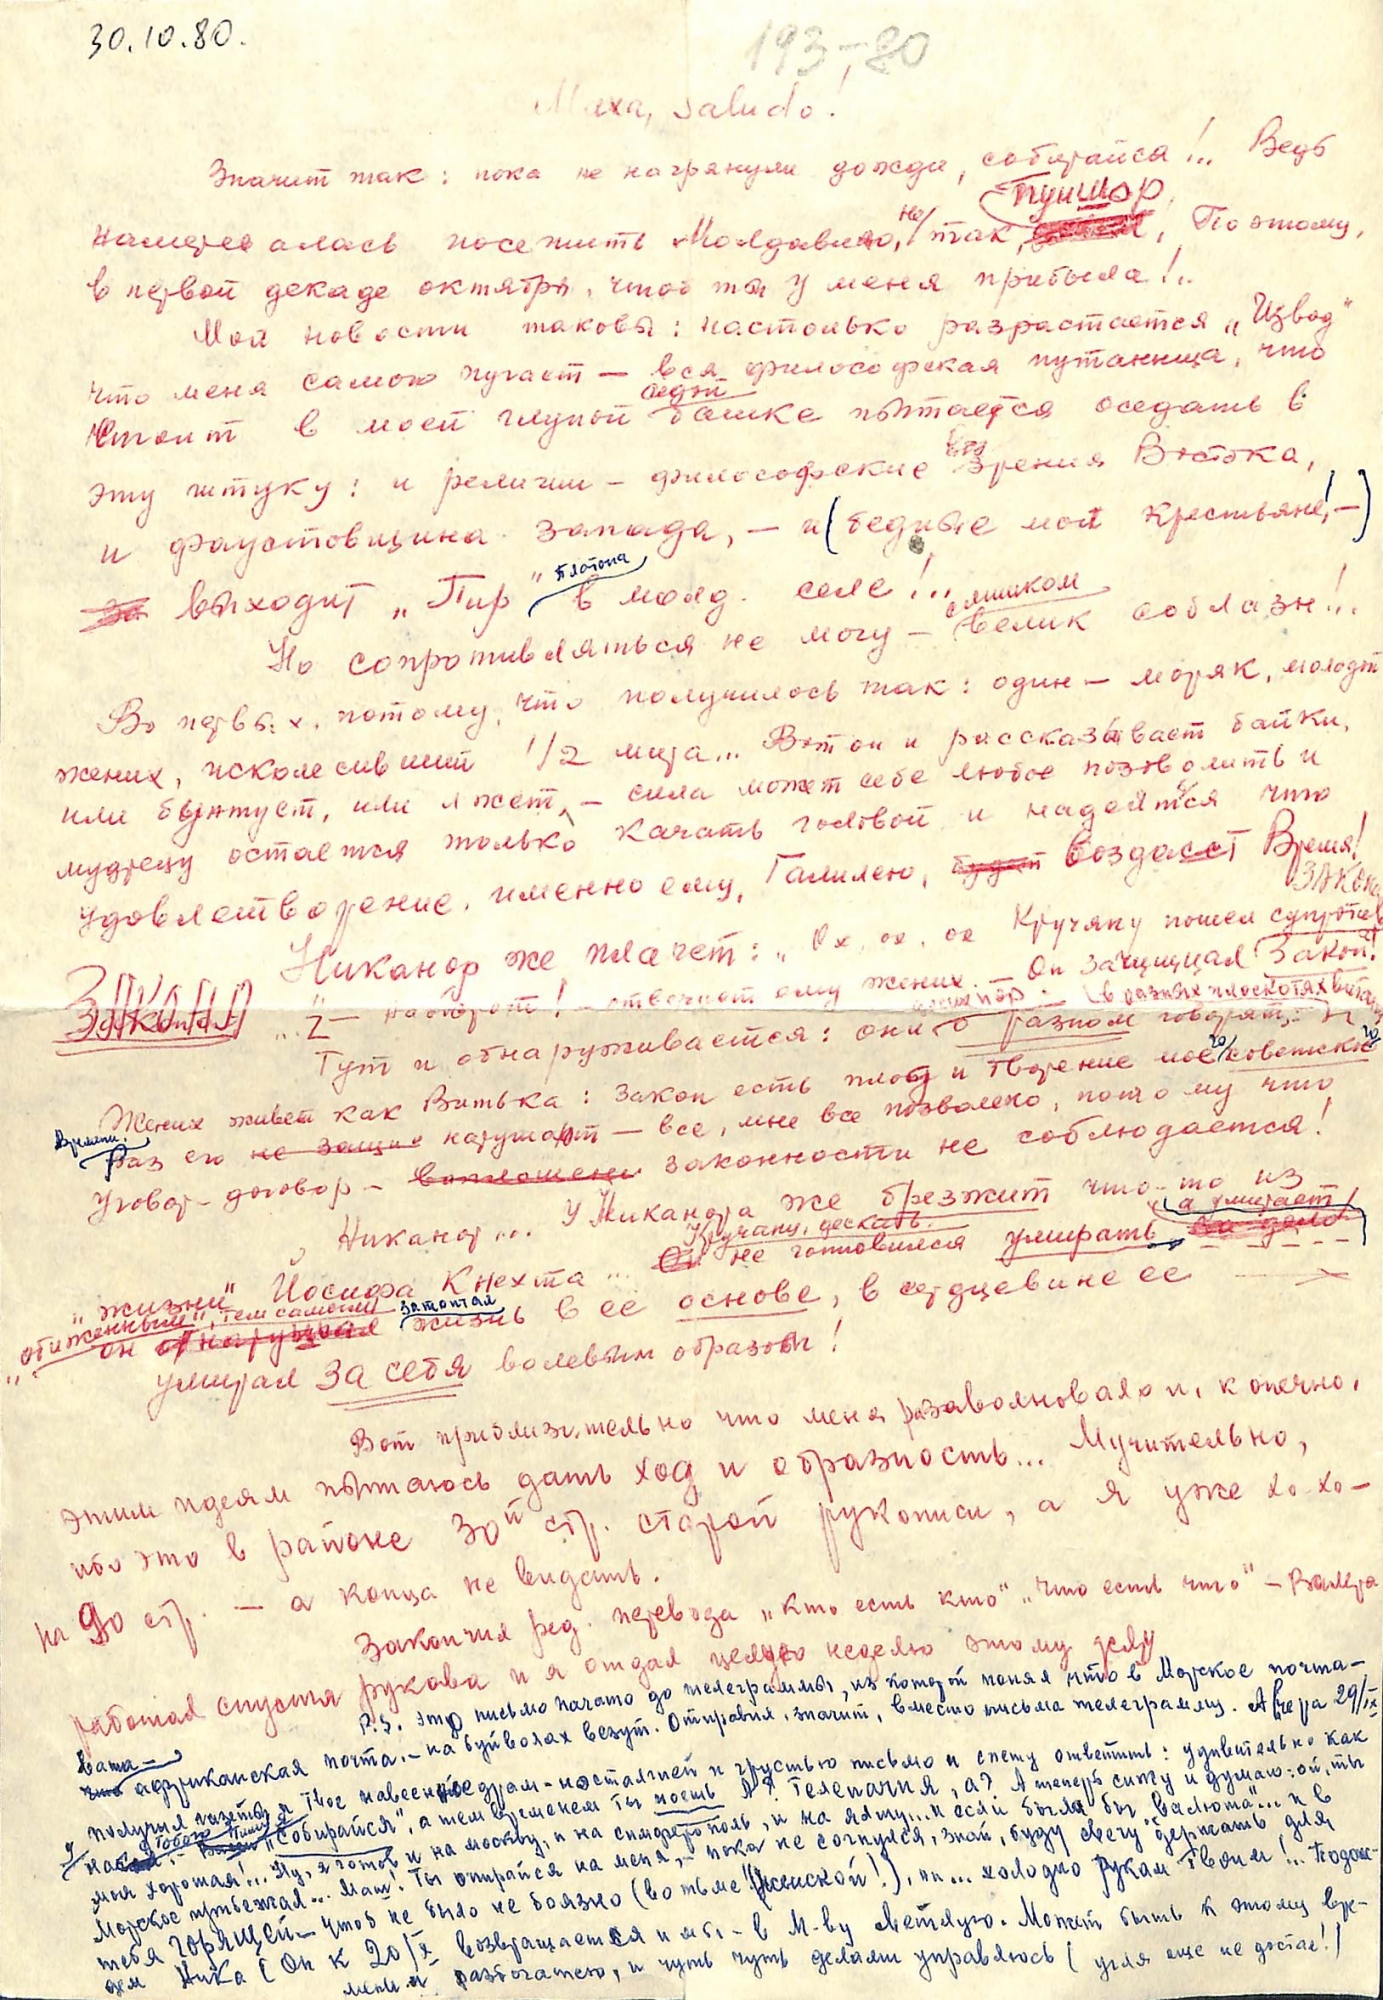 30.10.80.
193-80
Маха, saludo!
Значит так: пока не нагрянули дожди, собирайся!.. Ведь
Пуишор
намеревалась посетить Молдавию, но так, Поэтому,
в первой декаде октября, чтоб ты у меня прибыла!..
Мои новости таковы: настолько разрастается „Извод"
что меня самого пугает — вся философская путаница, что
седой
стоит в моей глупой башке пытается оседать в
эту штуку: и религии - философские воззрения Востока,
и фаустовщина запада, — и (бедные мои крестьяне!, —)
выходит „Пир" Платона в молд. селе!..
слишком
Но сопротивляться не могу — велик соблазн!..
Во первых, потому, что получилось так: один — моряк, молодой
жених, исколесивший 1/2 мира... Вот он и рассказывает байки,
или бунтует, или лжет, — сила может себе любое позволить и
мудрецу остается только качать головой и надеяться что
удовлетворение, именно ему, Галилею, воздаст Время!
ЗАКОНА
Никанор же плачет: „Ох, ох, ох Кручяну пошел супротив
ЗАКОНЫ
„Z — наоборот! — отвечает ему жених. — Он защищал Закон!
(в разных плоскостях
Тут и обнаруживается: они о разном говорят:
Жених живет как Витька: закон есть плод и творение мое/советского
Времени.
Раз его нарушают — все, мне все позволено, потому что
Уговор-договор - законности не соблюдается!
Никанор... У Никанора же брезжит что-то из
Кручяну, дескать. а умирает
„жизни" Йосифа Кнехта... не готовился умирать
„обиженным", тем самым затоптал
он жизнь в ее основе, в сердцевине ее
умирал за себя волевым образом!
Вот приблизительно что меня разволновало и, конечно,
этим идеям пытаюсь дать ход и образность... Мучительно,
ибо это в районе 30й стр. старой рукописи, а я уже хо-хо-
на 90 стр. — а конца не видать.
Закончил ред. перевода „кто есть кто" „что есть что" — Валера
работал спустя рукава и я отдал целую неделю этому делу
P.S. Это письмо начато до телеграммы, из которой понял что в Морское почта-
Ваша —
африканская почта. — на буйволах везут. Отправил, значит, вместо письма телеграмму. А вчера 29/IX
получил газеты и твое навеянное драм-ностальгией и грустью письмо и спешу ответить: удивительно как
с Тобою Пишу я
„собирайся", а тем временем ты ность А? Телепатия, а? А теперь сижу и думаю: ой, ты
моя хорошая!... Ну, я готов и на москву, и на симферополь, и на ялту... и если была бы „валюта"... и в
Морское прибежал... Маш! Ты опирайся на меня, — пока не согнулся, знай, буду свечу держать для
тебя ГОРЯЩЕЙ — чтоб не было не боязно (во тьме женской!), и... холодно рукам Твоим!.. Подож-
дем Ника (он к 20/X возвращается и мы — в М-ву светлую. Может быть к этому вре-
мени и разбогатею, и чуть чуть делами управлюсь (угля еще не достал!)